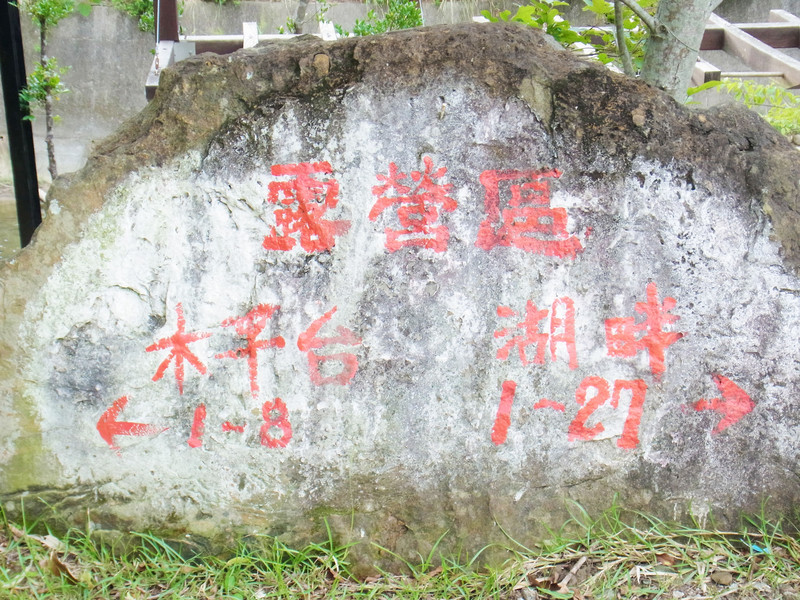 露營區
木平台 湖畔
← 1~8 1~27 →